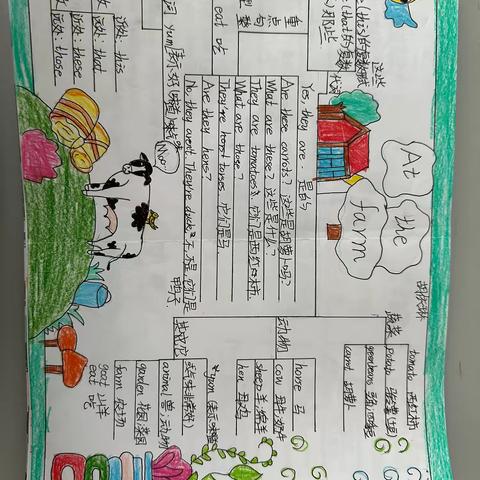 At
the
farm
这些
代词
Yes, they are. 是的
Are these carrots? 这些是胡萝卜吗?
What are these? 这些是什么?
They are tomatoes. 它们是西红柿
What are those?
They're horses. 它们是马.
Are they hens?
No, they aren't. They're ducks. 不是,它们是
鸭子
重点句
eat 吃
近处: this
远处: that
近处: these
远处: those
Moo
蔬菜
tomato 西红柿
potato 马铃薯(土豆)
green beans
carrot 胡萝卜
动物
horse 马
cow 母牛;奶牛
sheep 羊;绵羊
hen 母鸡
其它
yum
animal 兽;动物
garden 花园;菜园
farm 农场
goat 山羊
eat 吃